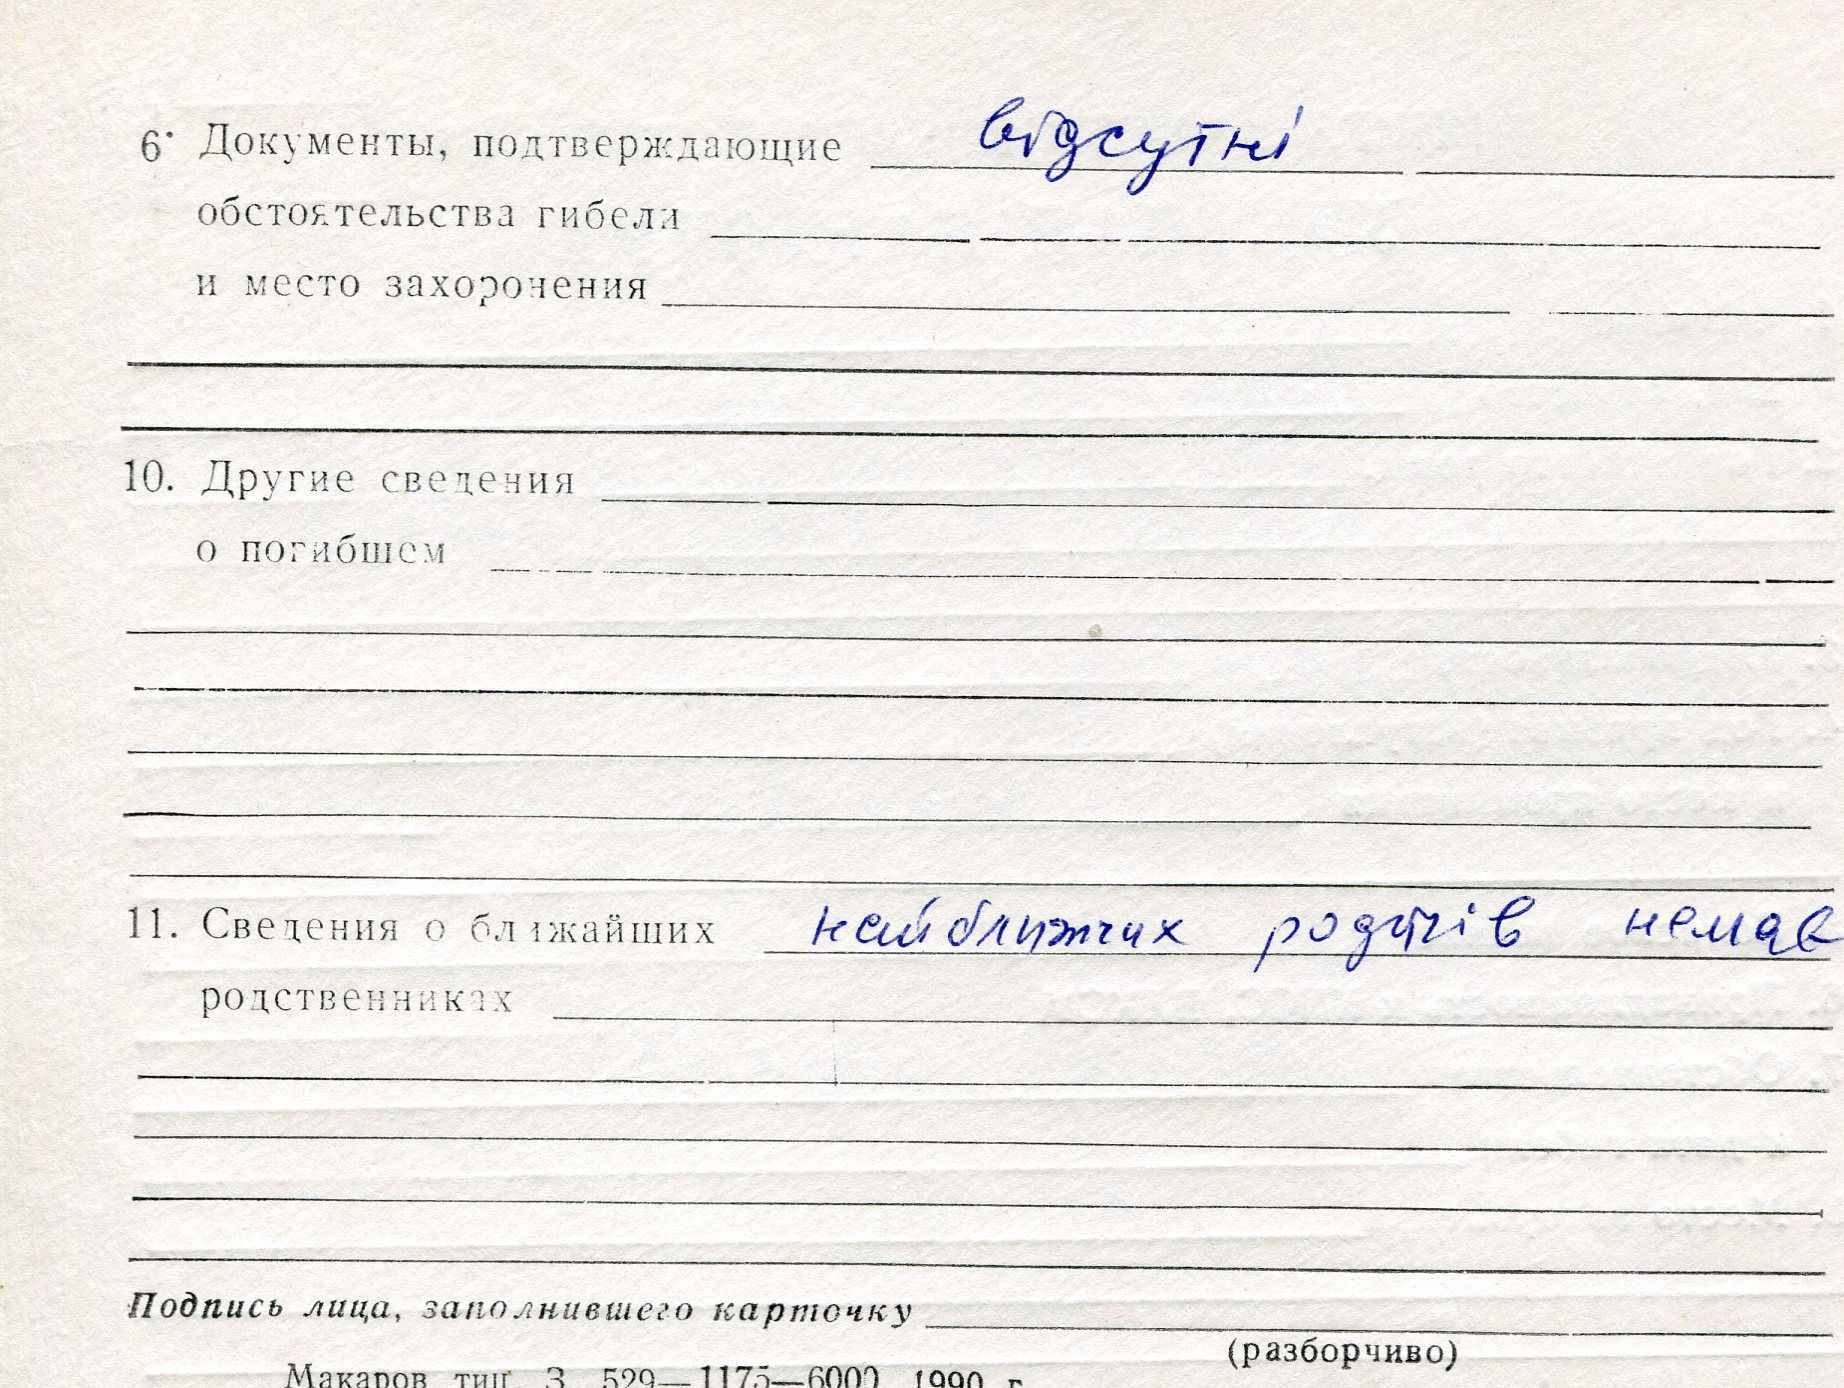 6. Документы, подтверждающие відсутні
обстоятельства гибели
и место захоронения
10. Другие сведения
о погибшем
11. Сведения о ближайших найближчих родичів немає
родственниках
Подпись лица, заполнившего карточку
(разборчиво)
Макаров тип. З. 529—1175—6000 1990 г.